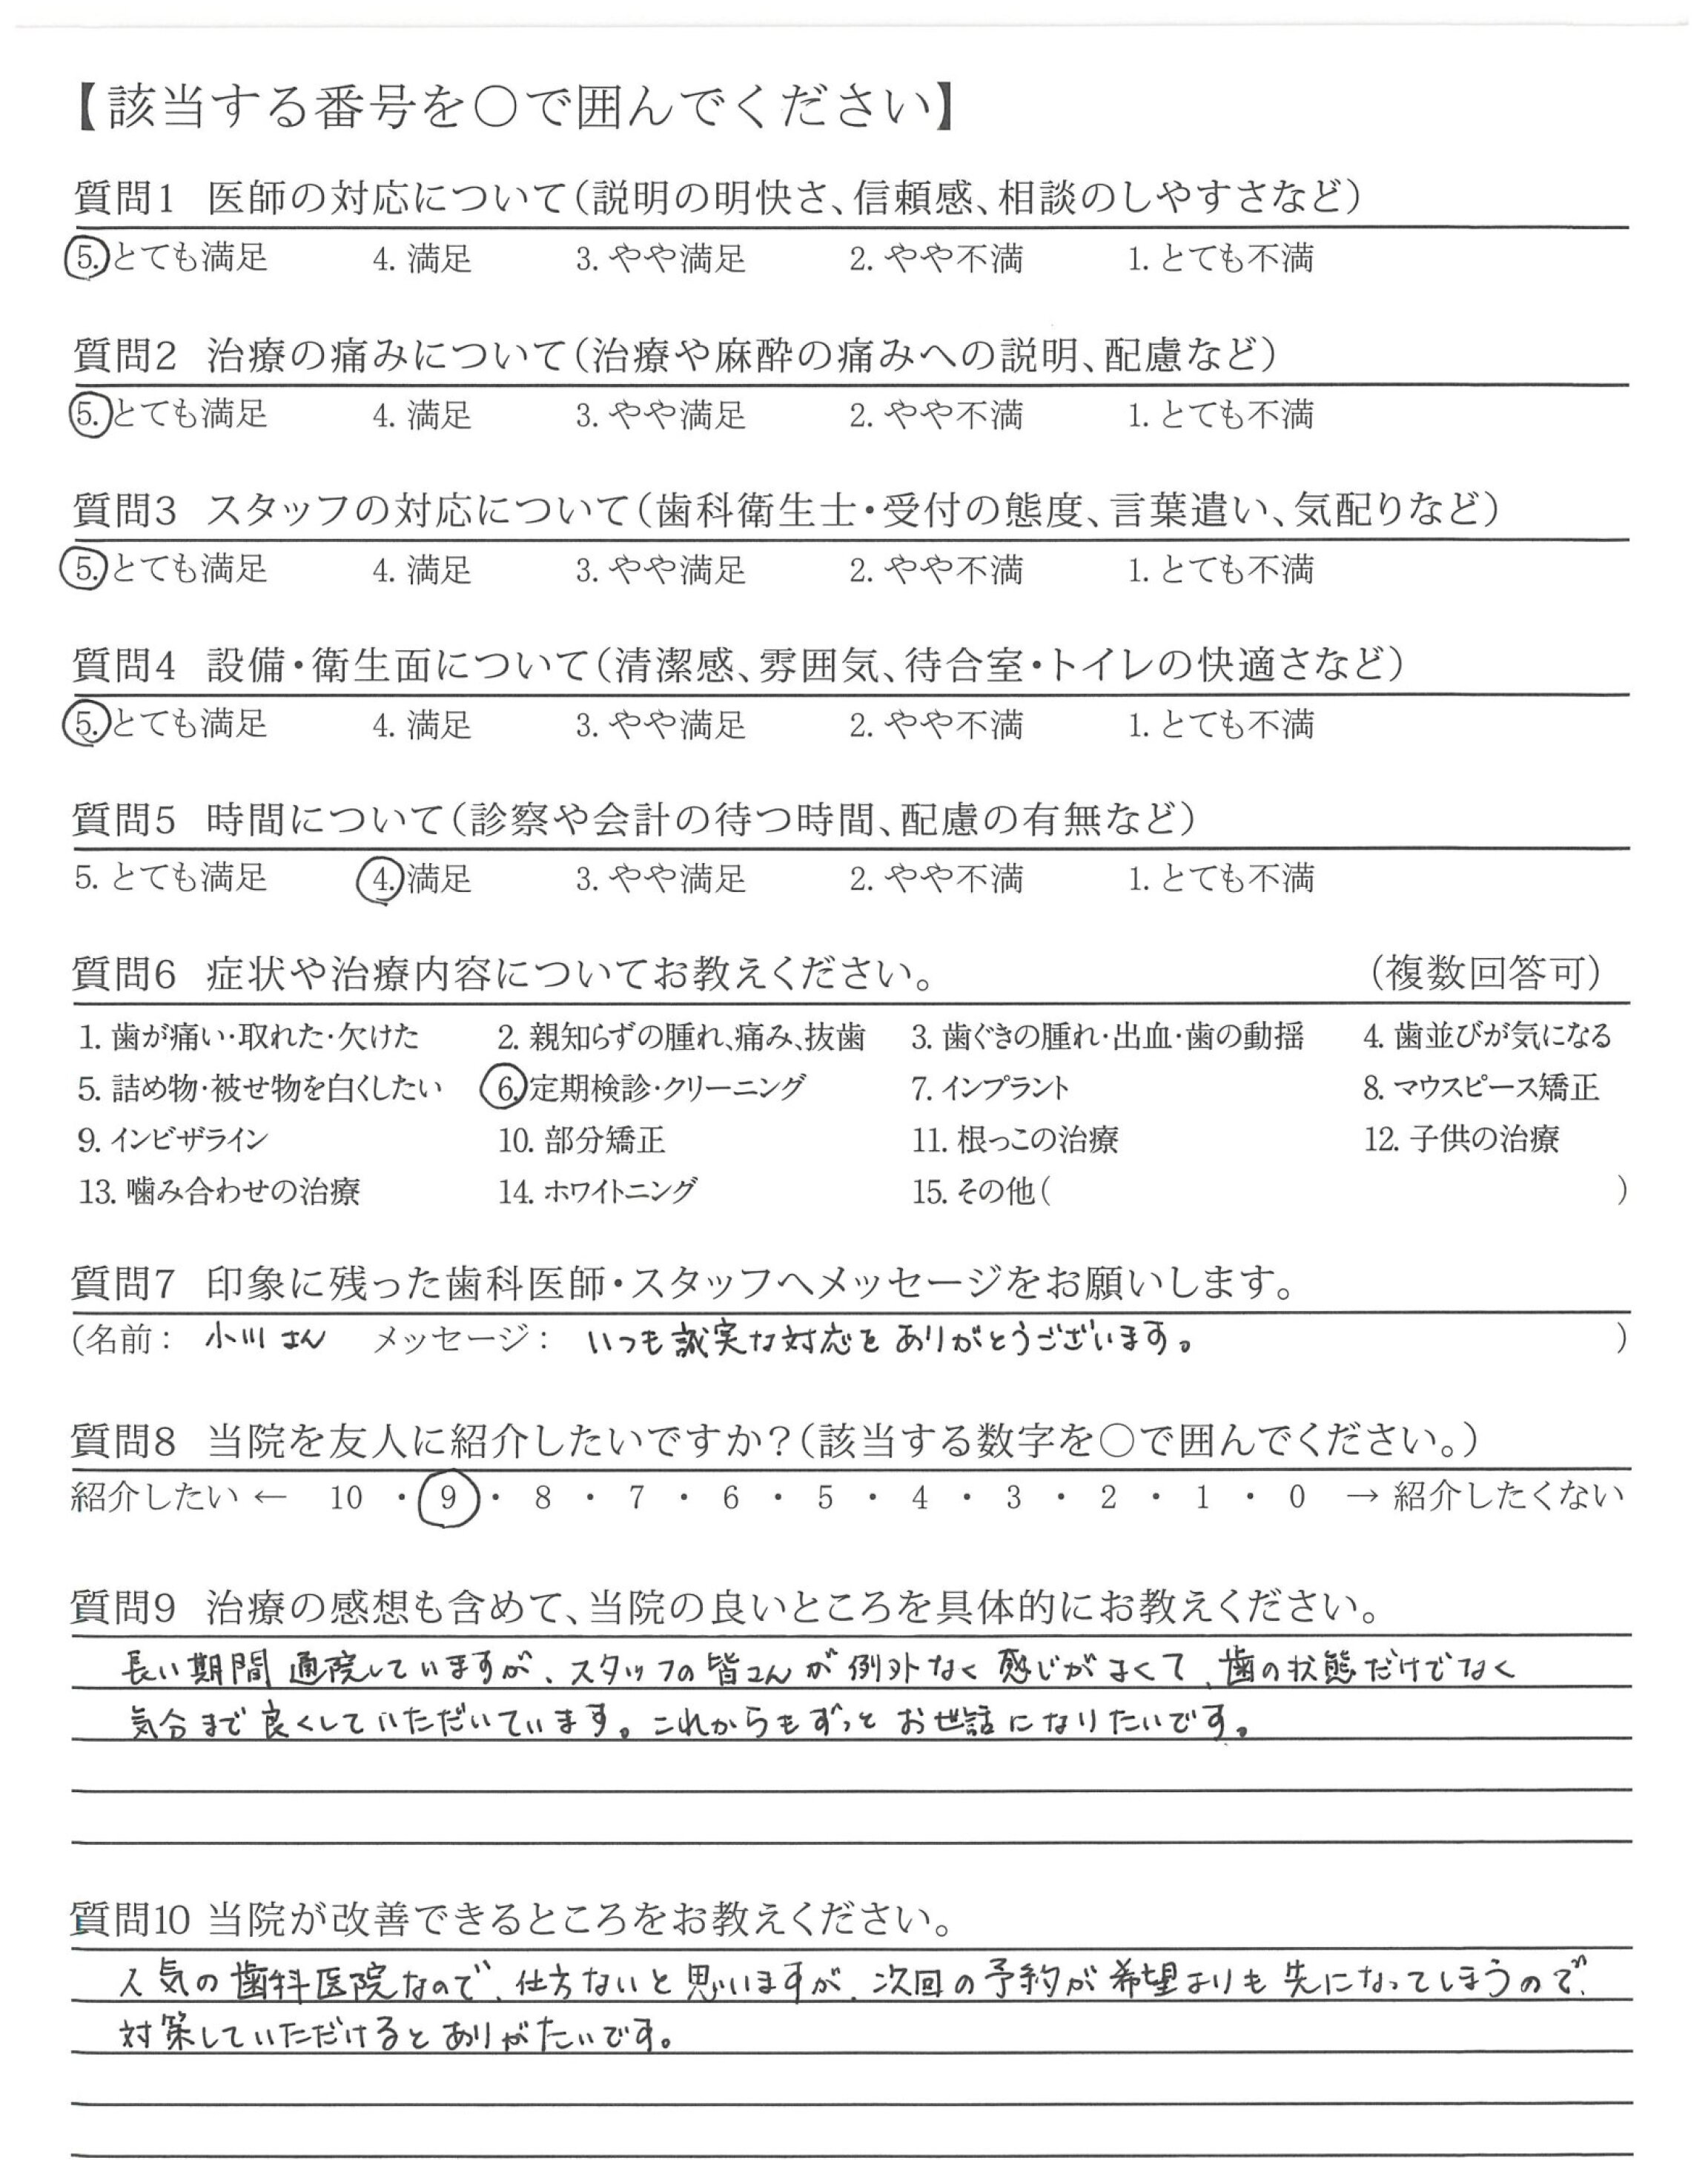 【該当する番号を○で囲んでください】
質問1 医師の対応について(説明の明快さ、信頼感、相談のしやすさなど)
5. とても満足 4. 満足 3. やや満足 2. やや不満 1. とても不満
質問2 治療の痛みについて(治療や麻酔の痛みへの説明、配慮など)
5. とても満足 4. 満足 3. やや満足 2. やや不満 1. とても不満
質問3 スタッフの対応について(歯科衛生士・受付の態度、言葉遣い、気配りなど)
5. とても満足 4. 満足 3. やや満足 2. やや不満 1. とても不満
質問4 設備・衛生面について(清潔感、雰囲気、待合室・トイレの快適さなど)
5. とても満足 4. 満足 3. やや満足 2. やや不満 1. とても不満
質問5 時間について(診察や会計の待つ時間、配慮の有無など)
5. とても満足 4. 満足 3. やや満足 2. やや不満 1. とても不満
質問6 症状や治療内容についてお教えください。 (複数回答可)
1. 歯が痛い・取れた・欠けた 2. 親知らずの腫れ、痛み、抜歯 3. 歯ぐきの腫れ・出血・歯の動揺 4. 歯並びが気になる
5. 詰め物・被せ物を白くしたい 6. 定期検診・クリーニング 7. インプラント 8. マウスピース矯正
9. インビザライン 10. 部分矯正 11. 根っこの治療 12. 子供の治療
13. 噛み合わせの治療 14. ホワイトニング 15. その他( )
質問7 印象に残った歯科医師・スタッフへメッセージをお願いします。
(名前: 小川さん メッセージ: いつも誠実な対応をありがとうございます。 )
質問8 当院を友人に紹介したいですか?(該当する数字を○で囲んでください。)
紹介したい ← 10 ・ 9 ・ 8 ・ 7 ・ 6 ・ 5 ・ 4 ・ 3 ・ 2 ・ 1 ・ 0 → 紹介したくない
質問9 治療の感想も含めて、当院の良いところを具体的にお教えください。
長い期間通院していますが、スタッフの皆さんが例外なく感じがよくて、歯の状態だけでなく
気分まで良くしていただいています。これからもずっとお世話になりたいです。
質問10 当院が改善できるところをお教えください。
人気の歯科医院なので、仕方ないと思いますが、次回の予約が希望よりも先になってしまうので、
対策していただけるとありがたいです。